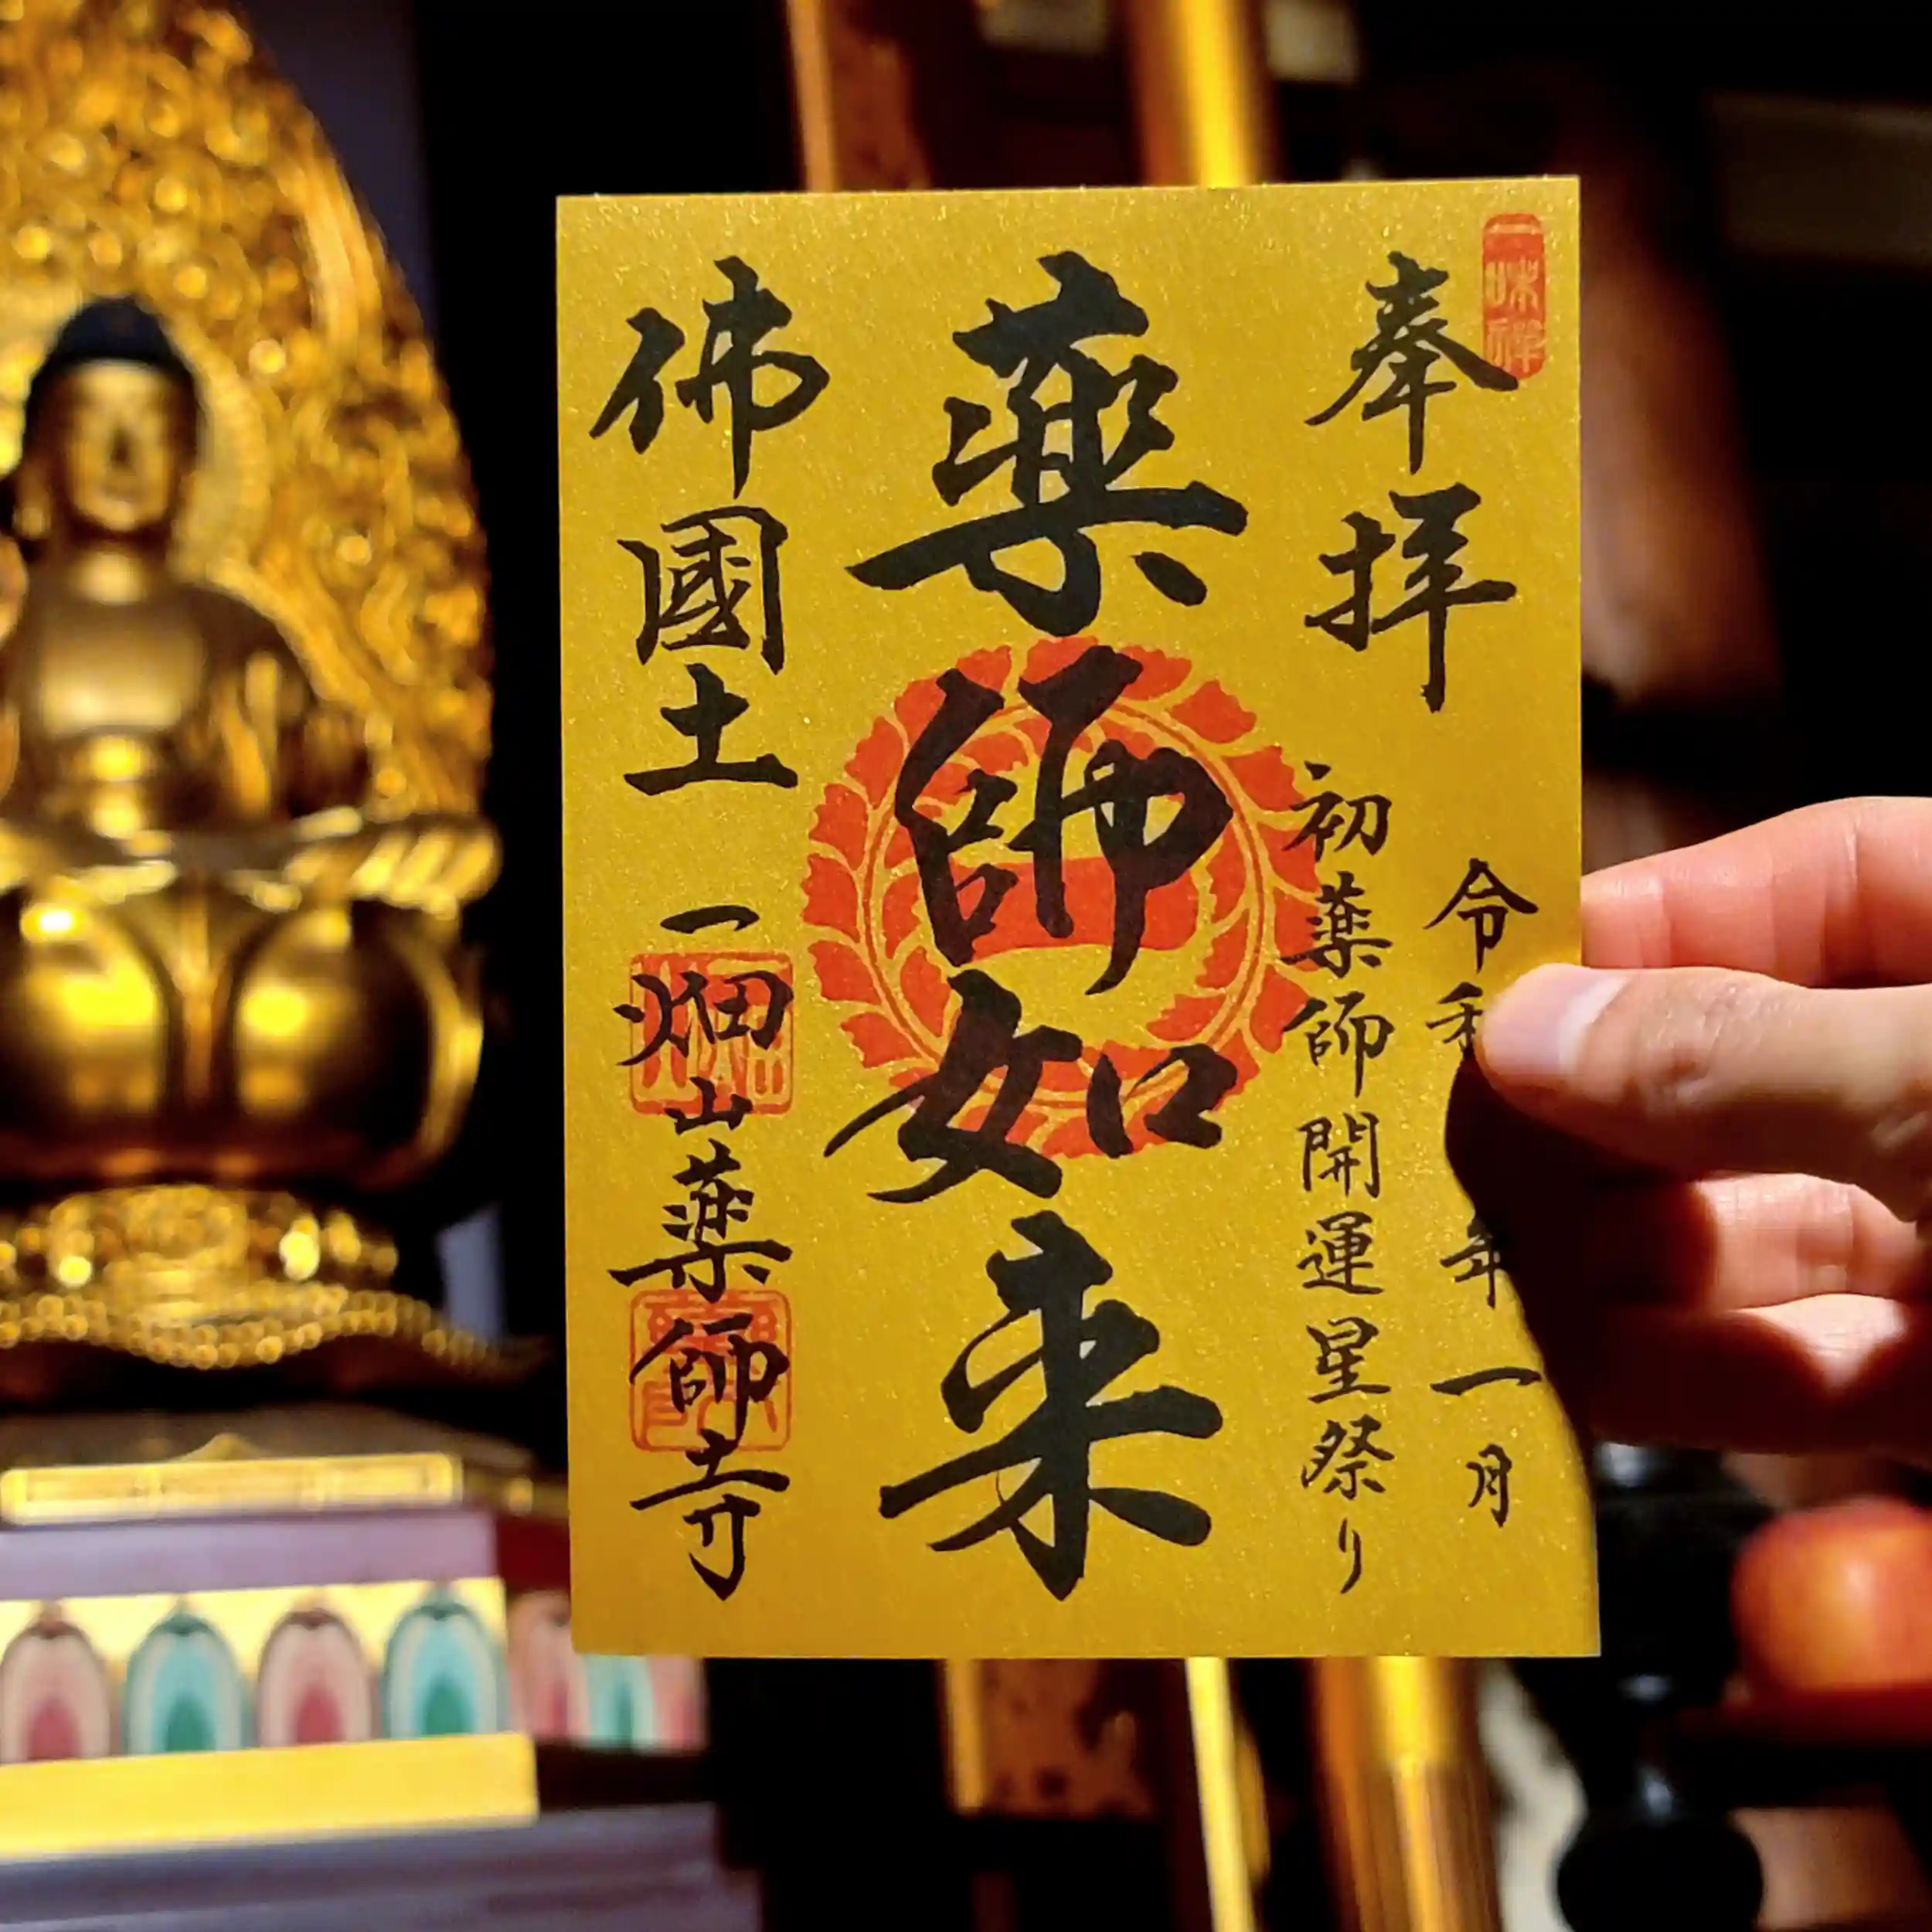 奉拝
令和 年一月
初薬師開運星祭り
薬師如来
佛國土
一畑山薬師寺